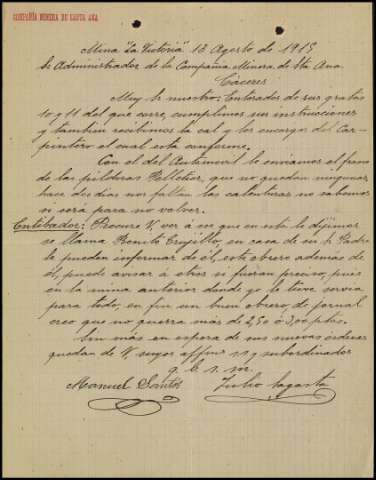 COMPAÑÍA MINERA DE SANTA ANA
Mina "La Victoria" 13 Agosto de 1913
Sr Administrador de la Compañia Minera de Sta Ana.
Cáceres
Muy Sr nuestro: Enterados de sus gratas
10 y 11 del que corre, cumplimos sus instrucciones
y tambien recibimos la cal y los encargos del Car-
pintero el cual está conforme.
Con el del Automovil le enviamos el frasco
de las pildoras Pelletier, que no quedan ningunas
hace dias nos faltan las calenturas no sabemos
si será para no volver.
Entibador: Procure V. ver á en que en esta le dijimos
se llama Benito Trujillo, en casa de su Padre
le pueden informar de él, este obrero además de
él, puede avisar á otros si fueran preciso, pues
en la mina anterior donde yo le tuve servia
para todo, en fin un buen obrero, de jornal
creo que no querra más de 2,50 ó 3,00 ptas.
Sin más en espera de sus nuevas órdenes
quedan de V. suyos affmos s.s. y subordinados
q. b. s. m.
Manuel Santos Julio Sagasta